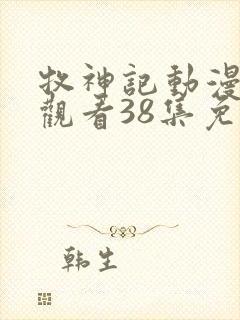 牧神記動漫
觀看38集免
韩生